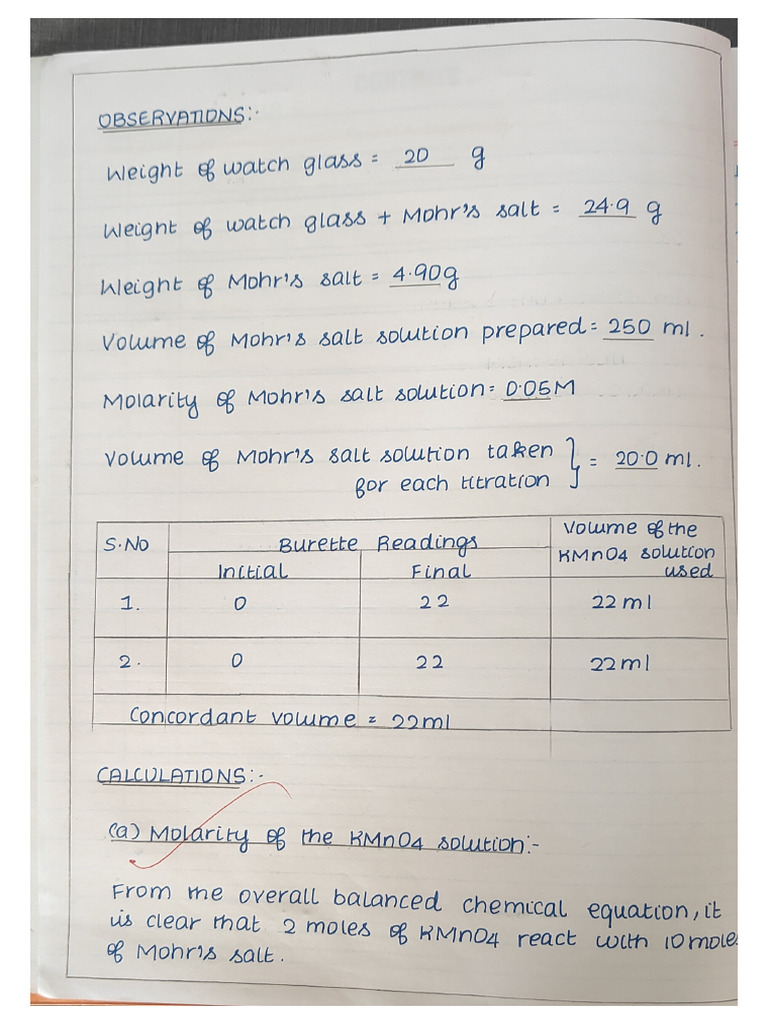 OBSERVATIONS:-
Weight of watch glass = 20 g
Weight of watch glass + Mohr's salt = 24.9 g
Weight of Mohr's salt = 4.90g
Volume of Mohr's salt solution prepared = 250 ml.
Molarity of Mohr's salt solution = 0.05M
Volume of Mohr's salt solution taken
for each titration } = 20.0 ml.
S.No Burette Readings Volume of the KMnO4 solution used
Initial Final
1. 0 22 22 ml
2. 0 22 22 ml
Concordant volume = 22ml
CALCULATIONS:-
(a) Molarity of the KMnO4 solution:-
From the overall balanced chemical equation, it
is clear that 2 moles of KMnO4 react with 10 moles
of Mohr's salt.